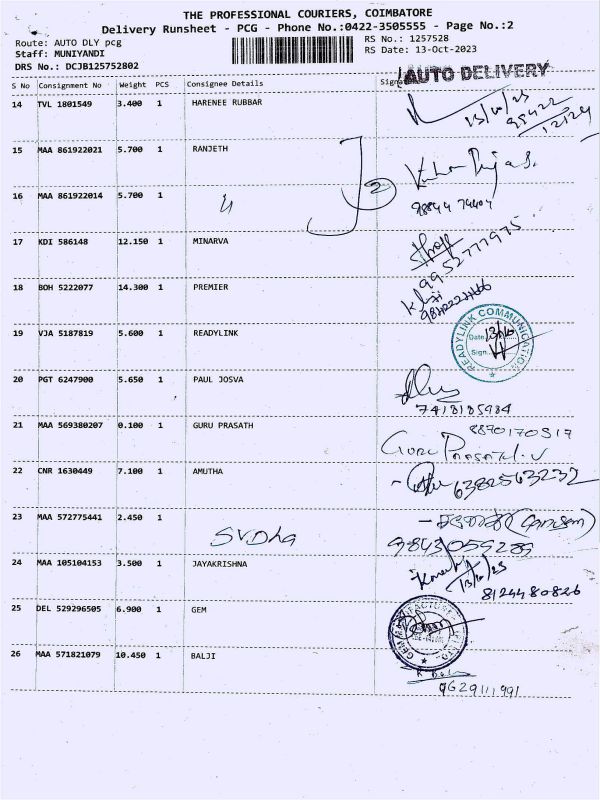 THE PROFESSIONAL COURIERS, COIMBATORE
Delivery Runsheet - PCG - Phone No.:0422-3505555 - Page No.:2
Route: AUTO DLY pcg RS No.: 1257528
Staff: MUNIYANDI RS Date: 13-Oct-2023
DRS No.: DCJB125752802
AUTO DELIVERY
S No Consignment No Weight PCS Consignee Details
14 TVL 1801549 3.400 1 HARENEE RUBBAR
13/10/23
95422
12124
15 MAA 861922021 5.700 1 RANJETH
16 MAA 861922014 5.700 1 "
2
98844 74404
17 KDI 586148 12.150 1 MINARVA
9952777975
18 BOH 5222077 14.300 1 PREMIER
19 VJA 5187819 5.600 1 READYLINK
READYLINK COMMUNICATION
Date 13/10
Sign
20 PGT 6247900 5.650 1 PAUL JOSVA
7418185984
21 MAA 569380207 0.100 1 GURU PRASATH
8870170517
GURU PRASATH.V
22 CNR 1630449 7.100 1 AMUTHA
6382563232
23 MAA 572775441 2.450 1 SVDha
(Ganesan)
9843055289
24 MAA 105104153 3.500 1 JAYAKRISHNA
13/10/23
8124480826
25 DEL 529296505 6.900 1 GEM
26 MAA 571821079 10.450 1 BALJI
9629111991